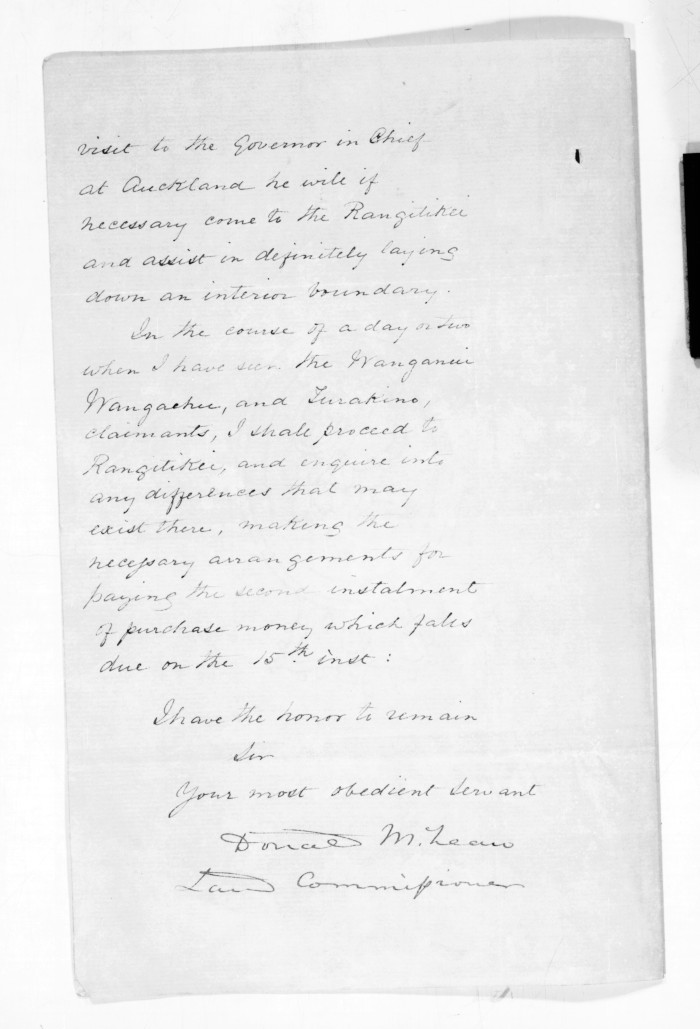 visit to the Governor in Chief
at Auckland he will if
necessary come to the Rangitikei
and assist in definitely laying
down an interior boundary.
In the course of a day or two
when I have seen the Wanganui
Wangaehu, and Turakino,
claimants, I shall proceed to
Rangitikei, and enquire into
any differences that may
exist there, making the
necessary arrangements for
paying the second instalment
of purchase money which falls
due on the 15th inst:
I have the honor to remain
Sir
Your most obedient servant
Donald McLean
Land Commissioner